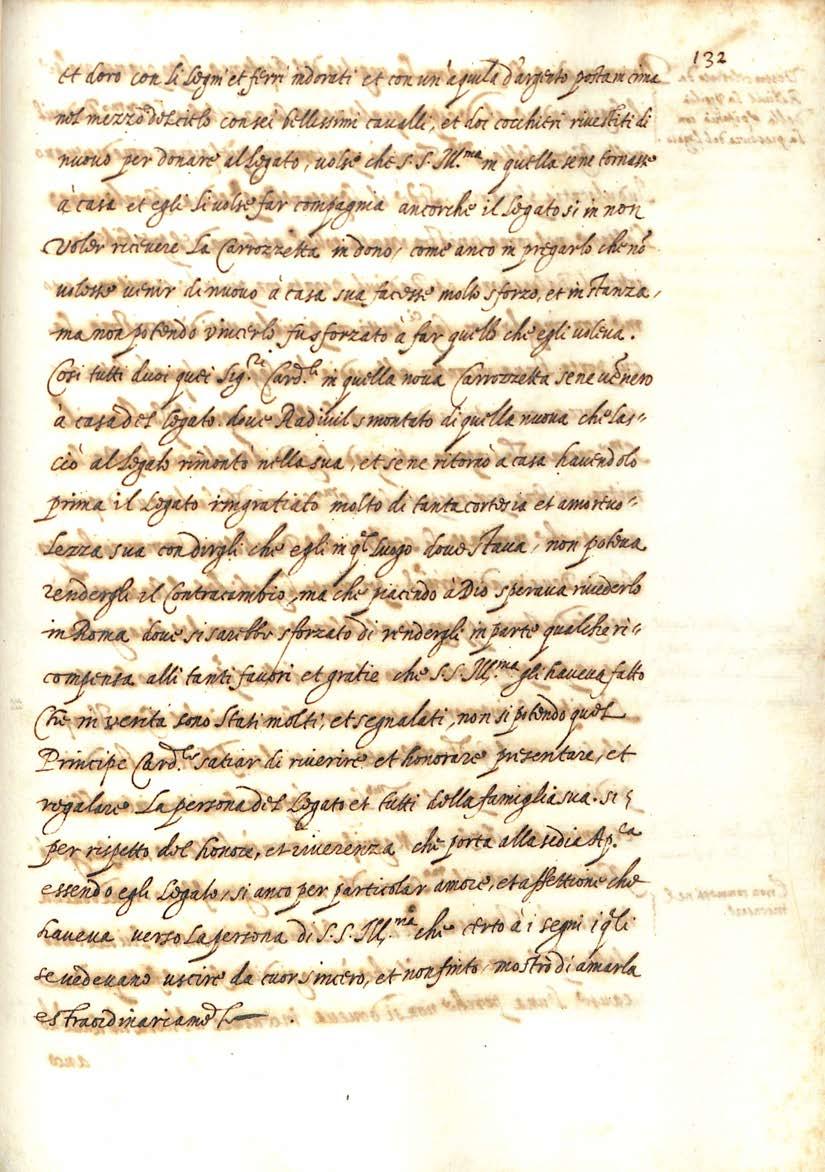 132
et d'oro con li legni et ferri indorati et con un'aquila d'argento posta in cima
nel mezzo del cielo con sei bellissimi cavalli, et doi cocchieri rivestiti di
nuovo per donare al legato, volse che S. S. Ill.ma in quella se ne tornasse
à casa et egli li volse far compagnia ancorche il legato si in non
voler ricevere la Carrozzetta in dono, come anco in pregarlo che nõ
volesse venir di nuovo à casa sua facesse molto sforzo, et instanza,
ma non potendo vincerlo fu sforzato à far quello che egli voleva.
Cosi tutti duoi quei Sig.ri Card.li in quella nova Carrozzetta se ne vẽnero
à casa del legato. dove Radivil smontato di quella nuova che las=
ciò al legato rimontò nella sua, et se ne ritornò a casa havendolo
prima il legato ringratiato molto di tanta cortesia et amorevo=
lezza sua con dirgli che egli in q.l luogo dove stava, non poteva
rendergli il contracambio, ma che piacendo à Dio sperava rivederlo
in Roma dove si sarebbe sforzato di rendergli in parte qualche ri=
compensa alli tanti favori et gratie che S. S. Ill.ma gli haveva fatto
Che in verità sono stati molti, et segnalati, non si potendo quel
Principe Card.le satiar di riverire et honorare presentare, et
regalare la persona del legato et tutti della famiglia sua. si
per rispetto del honore, et riverenza che porta alla sedia Ap.ca
essendo egli legato, si anco per particolar amore, et affettione che
haveva verso la persona di S. S. Ill.ma che certo à i segni i q.li
se vedevano uscire da cuor sincero, et non finto mostrò di amarla
estraordinariam.te